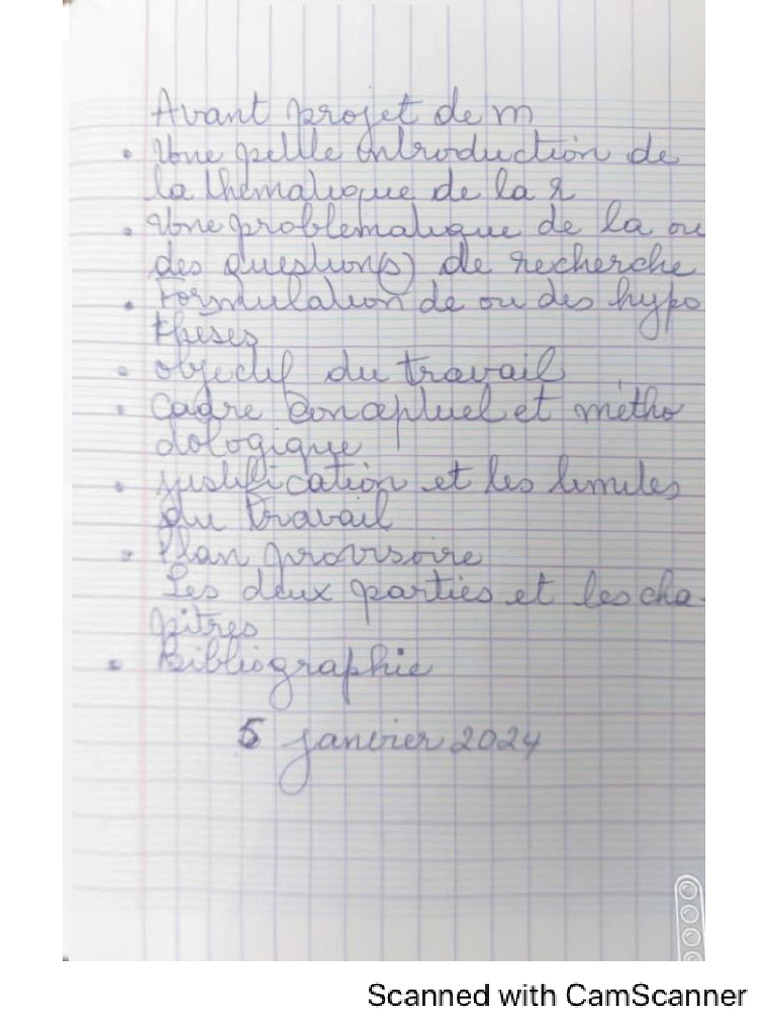 Avant projet de m
• Une petite introduction de
la thématique de la r
• Une problematique de la ou
des question(s) de recherche
• Formulation de ou des hypo
theses
• objectif du travail
• Cadre conceptuel et métho
dologique
• justification et les limites
du travail
• Plan provisoire
Les deux parties et les cha-
pitres
• Bibliographie
5 janvier 2024
Scanned with CamScanner